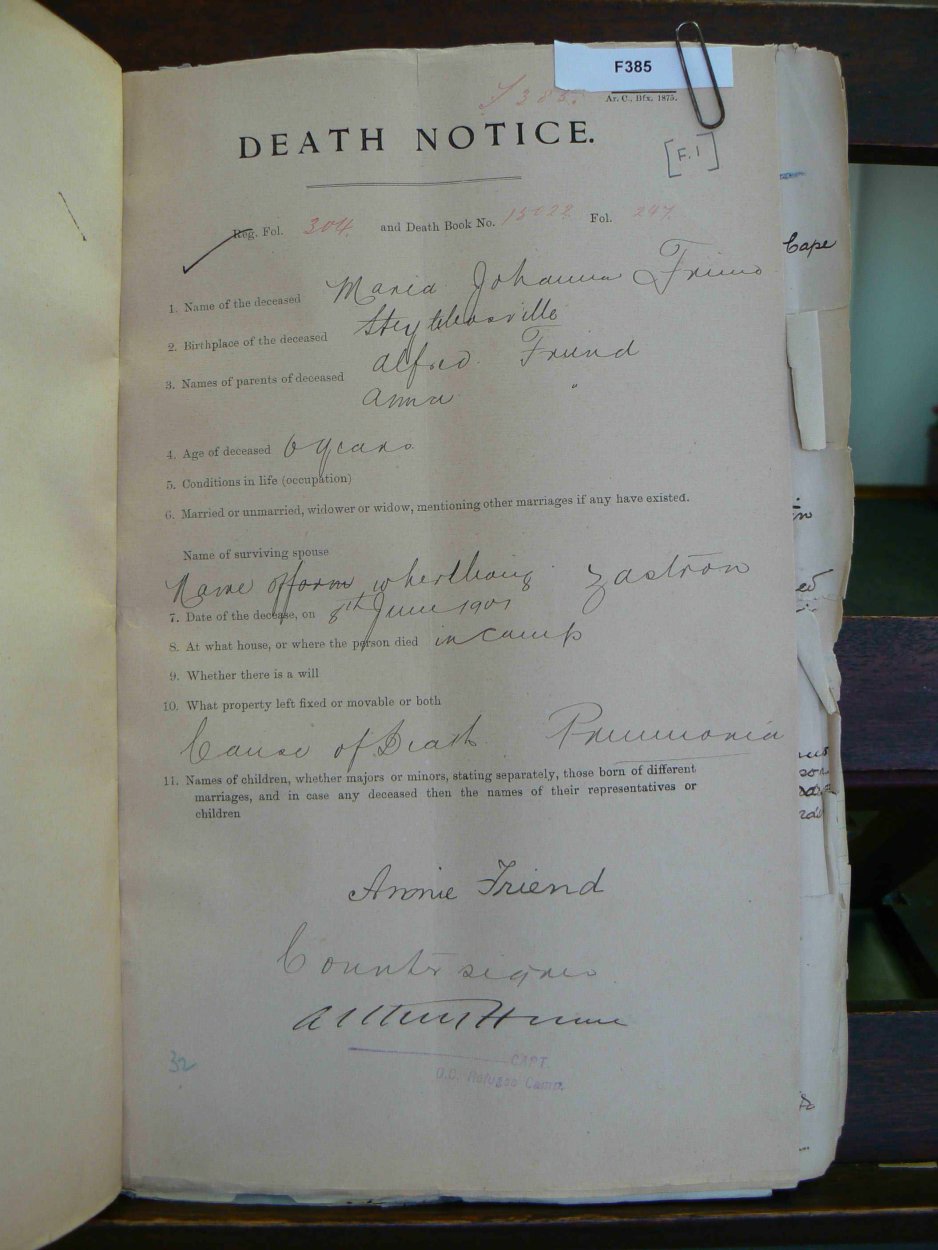 F385
F385.
Ar. C., Bfx. 1875.
DEATH NOTICE.
[F.1]
Reg. Fol. 304. and Death Book No. Fol. 247.
1. Name of the deceased Maria Johanna Friend
2. Birthplace of the deceased
3. Names of parents of deceased Alfred Friend
Anna "
4. Age of deceased 6 years
5. Conditions in life (occupation)
6. Married or unmarried, widower or widow, mentioning other marriages if any have existed.
Name of surviving spouse
Name of farm Zastron
7. Date of the decease, on 8th June 1901
8. At what house, or where the person died in camp
9. Whether there is a will
10. What property left fixed or movable or both
Cause of Death Pneumonia
11. Names of children, whether majors or minors, stating separately, those born of different
marriages, and in case any deceased then the names of their representatives or
children
Annie Friend
Countersigned
CAPT.
O.C. Refugee Camp.
32
Cape